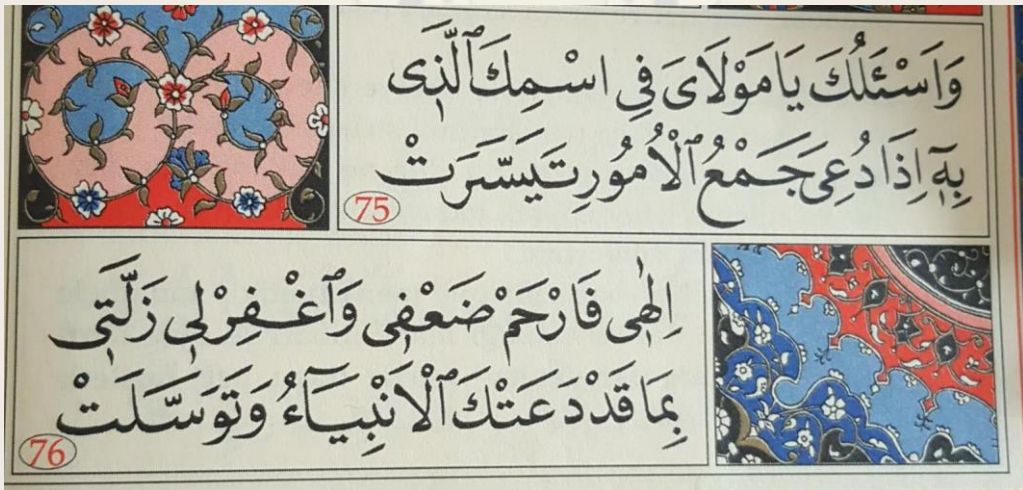 وَاَسْئَلُكَ يَا مَوْلَاىَ فِى اسْمِكَ ٱلَّذِى
بِهِٓ اِذَا دُعِىَ جَمْعُ ٱلْاُمُورِ تَيَسَّرَتْ
75
اِلٰهِى فَارْحَمْ ضَعْفِى وَٱغْفِرْ لِى زَلَّتِى
بِمَا قَدْ دَعَتْكَ ٱلْاَنْبِيَآءُ وَتَوَسَّلَتْ
76